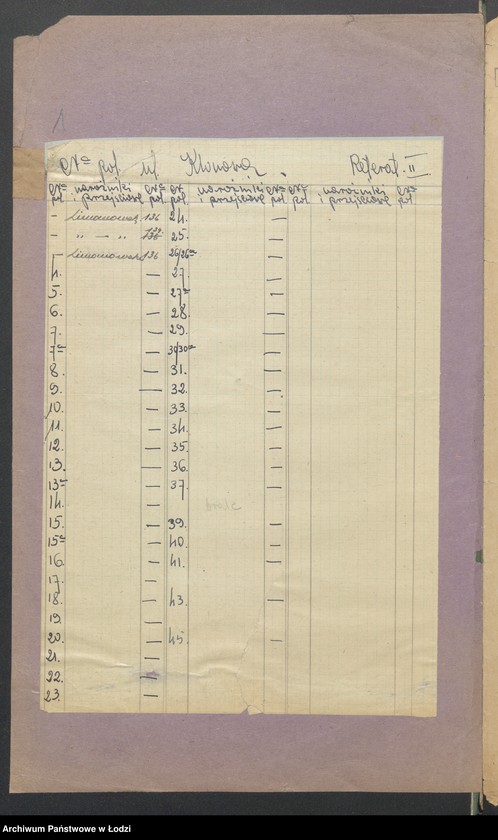 1
№ pol. ul. Klonowa. Referat. II
№ pol narożniki i przejściowe № pol № pol. narożniki i przejściowe № pol № pol narożniki i przejściowe № pol
— Limanowsk. 136 24. —
— " — " 25. —
Limanowsk. 136 26/26a —
4. — 27 —
5. — 27a —
6. — 28 —
7. — 29. —
7a — 30/30a —
8. — 31. —
9. — 32. —
10. — 33. —
11. — 34. —
12. — 35. —
13. — 36. —
13a — 37. —
14. —
15. — 39. —
15a — 40. —
16. — 41. —
17. —
18. — 43. —
19. —
20. — 45. —
21. —
22. —
23. —
Archiwum Państwowe w Łodzi